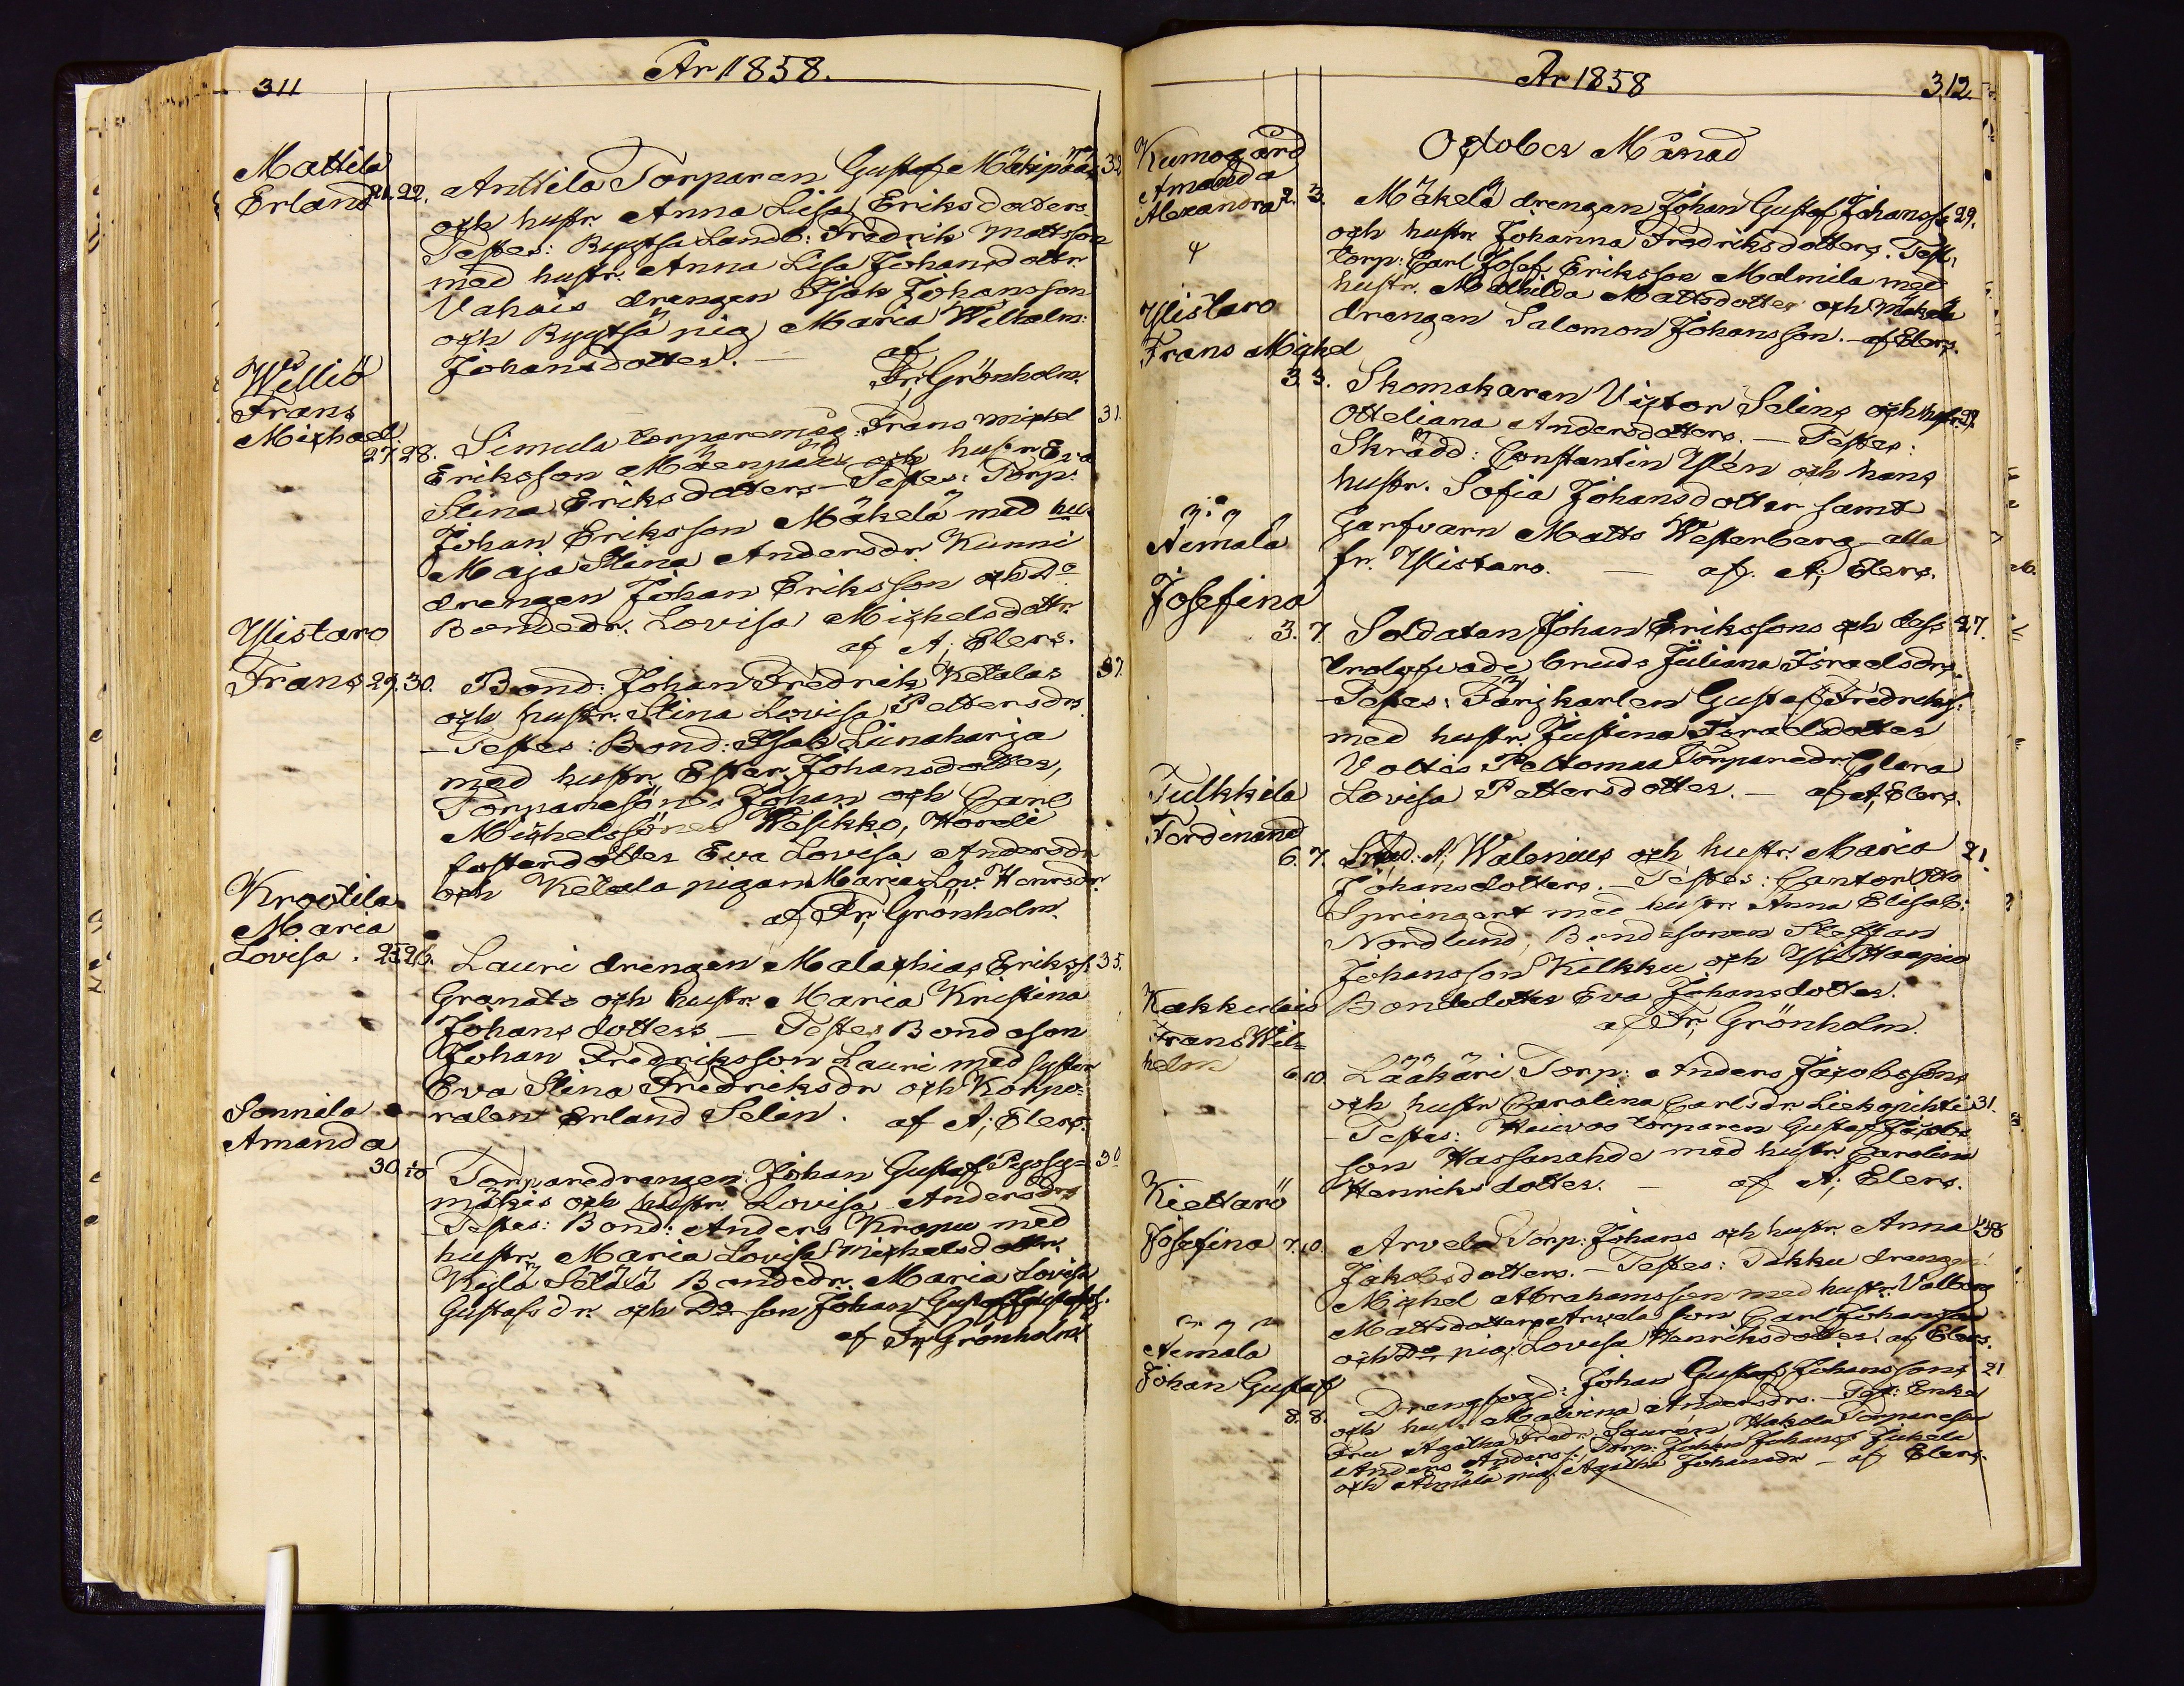 311
År 1858.
Mattila
Erland 21. 22. Anttila Torparen Gustaf Mäkipääs 32
och hustr. Anna Lisa Eriksdotters
Testes: Ryytsä Landb: Fredrik Mattsson
med hustr. Anna Lisa Johansdottr.
Vahais drengen Isak Johansson
och Ryytsä pig. Maria Wilhelm:
Johansdotter. — af
Fr; Grönholm.
Welliö
Frans
Michael
27. 28. Simula torparemåg: Frans Michel 31.
Eriksson Mäenpääs och hustr. Eva
Stina Eriksdotters — Testes: Torp:
Johan Eriksson Mäkelä med hu
Maja Stina Andersdr. Kunni
drengen Johan Eriksson och Do
Bondedr. Lovisa Michelsdottr.
af A; Elers.
Ylistaro
Frans 29. 30. Bond: Johan Fredrik Ketalas 37.
och hustr. Stina Lovisa Pettersdrs
— Testes: Bond: Isak Liinaharja
med hustr. Ester Johansdotter,
Torparesöner Johan och Carl
Michelssöner Wesikko,
fosterdotter Eva Lovisa Andersdr
och Ketala pigan Maria Lov. Henrsdr.
af Fr; Grönholm.
Krootila
Maria
Lovisa. 25. 26. Lauri drengen Malachias Erikss. 35.
Granats och hustr. Maria Kristina
Johansdotters — Testes Bondeson
Johan Fredriksson Lauri med syster
Eva Stina Fredriksdr och Korpo-
ralen Erland Selin. af A; Elers.
Sonnila
Amanda
30. Torparedrengen Johan Gustaf Pyssy- 30
mäkis och hustr. Lovisa Andersdrs
Testes: Bond: Anders Krapu med
hustr. Maria Lovisa Michelsdottr.
Kylä Sätälä Bondedr. Maria Lovisa
Gustafsdr. och Do son Johan Gustaf Gustafss.
af Fr; Grönholm
År 1858
312
October Månad
Kumogård
Amanda
Alexandra 2. 3. Mäkelä drengen Johan Gustaf Johanss. 29.
och hustr. Johanna Fredriksdotters. Test:
torp: Carl Josef Eriksson Malmila med
hustr. Mathilda Mattsdotter och Mäkelä
drengen Salomon Johansson. — af Elers.
Ylistaro
Frans Michel
3. 3. Skomakaren Victor Selins och hustr. 29.
Otteliana Andersdotters. — Testes:
Skrädd: Constantin Ylén och hans
hustr. Sofia Johansdotter samt
Garfvarn Matts Westerberg — alla
fr. Ylistaro. — af. A; Elers.
Äimälä
Josefina
3. 7. Soldaten Johan Erikssons och dess 27.
trolofvade bruds Juliana Israelsdrs.
— Testes: Färjkarlen Gustaf Fredrikss.
med hustr. Justina Israelsdotter
Voltis Peltomaa Torparedr. Clara
Lovisa Pettersdotter. — af A; Elers.
Tulkkila
Ferdinand
6. 7. A; Walenius och hustr. Maria 21.
Johansdotters. — Testes: Cantor Otto
Springert med hustr. Anna Elisab:
Nordlund; Bondesonen Steffan
Johansson Kilkku och Yli Haapio
Bondedotter Eva Johansdotter.
af Fr; Grönholm.
Kakkulais
Frans Wil-
helm 6. 10. Lääkäri Torp: Anders Jacobssons
och hustr. Carolina Carlsdr. Liekopihti 31.
— Testes: torparen Gustaf Jacobs
son Hassanahde med hustr. Carolina
Henriksdotter. — af A; Elers.
Kiettarö
Josefina 7. 10. Arvela Torp: Johans och hustr. Anna 38
Jakobsdotters. — Testes: Takku drengen
Michel Abrahamsson med hustr. Valborg
Mattsdotter, Arvela son Carl Johansson
och Do pig. Lovisa Henriksdotter. af Elers.
Äimälä
Johan Gustaf
8. 8. Johan Gustaf Johanssons 21
och hust. Malvina Andersdrs. — Test: Enke
Fru Agatha Fredr. Laurén, Hakola Torpareson
Anders Anderss: Torp. Johan Johanss Jukala
och Äimälä pig. Agatha Johansdr — af Elers.